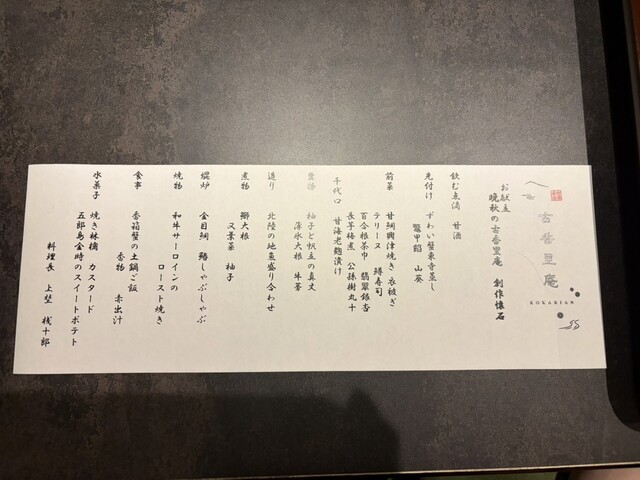 古香里庵
KOKARIAN
お献立
晩秋の古香里庵 創作懐石
飲む点滴 甘酒
先付け ずわい蟹東寺蒸し
鼈甲餡 山葵
前菜 甘鯛興津焼き 衣被ぎ
テリーヌ 鱒寿司
百合根茶巾 翡翠銀杏
長芋梅煮 公孫樹丸十
千代口 甘海老麹漬け
柚子と帆立の真丈
薄氷大根 牛蒡
造り 北陸の地魚盛り合わせ
煮物 鰤大根
又兼菜 柚子
焜炉 金目鯛 鰤しゃぶしゃぶ
焼物 和牛サーロインの
ロースト焼き
食事 香箱蟹の土鍋ご飯
香物 赤出汁
水菓子 焼き林檎 カスタード
五郎島金時のスイートポテト
料理長 上埜 桟十郎